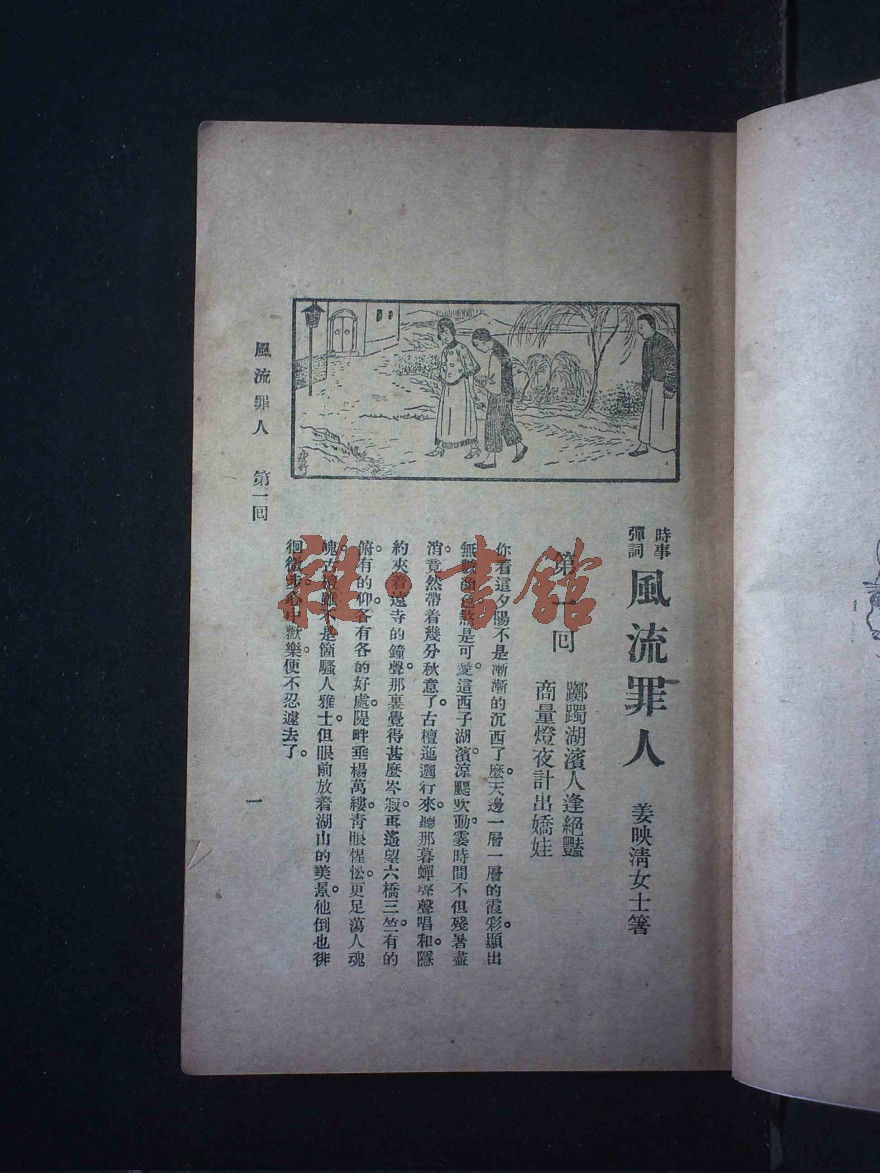 時事
彈詞
風流罪人
姜映清女士箸
第一回
躑躅湖濱人逢絕豔
商量燈夜計出嬌娃
你看這夕陽不是漸漸的沉西了麽。天邊一層一層的霞彩。顯出
無數顏色。煞是可愛。這西子湖濱。涼颸吹動。霎時間不但殘暑盡
消。竟然帶着幾分秋意了。古檀迤邐行來。聽那暮蟬聲聲唱和。隱
約夾着遠寺的鐘聲。那裏覺得甚麽岑寂。再遙望六橋三竺。有的
俯有的仰。各有各的好處。隄畔垂楊萬縷。靑眼惺忪。更足蕩人魂
魄。古檀雖不是箇騷人雅士。但眼前放着湖山的美景。他倒也徘
徊微步。心中歡樂。便不忍遽去了。
風流罪人 第一回
一
雜·書館